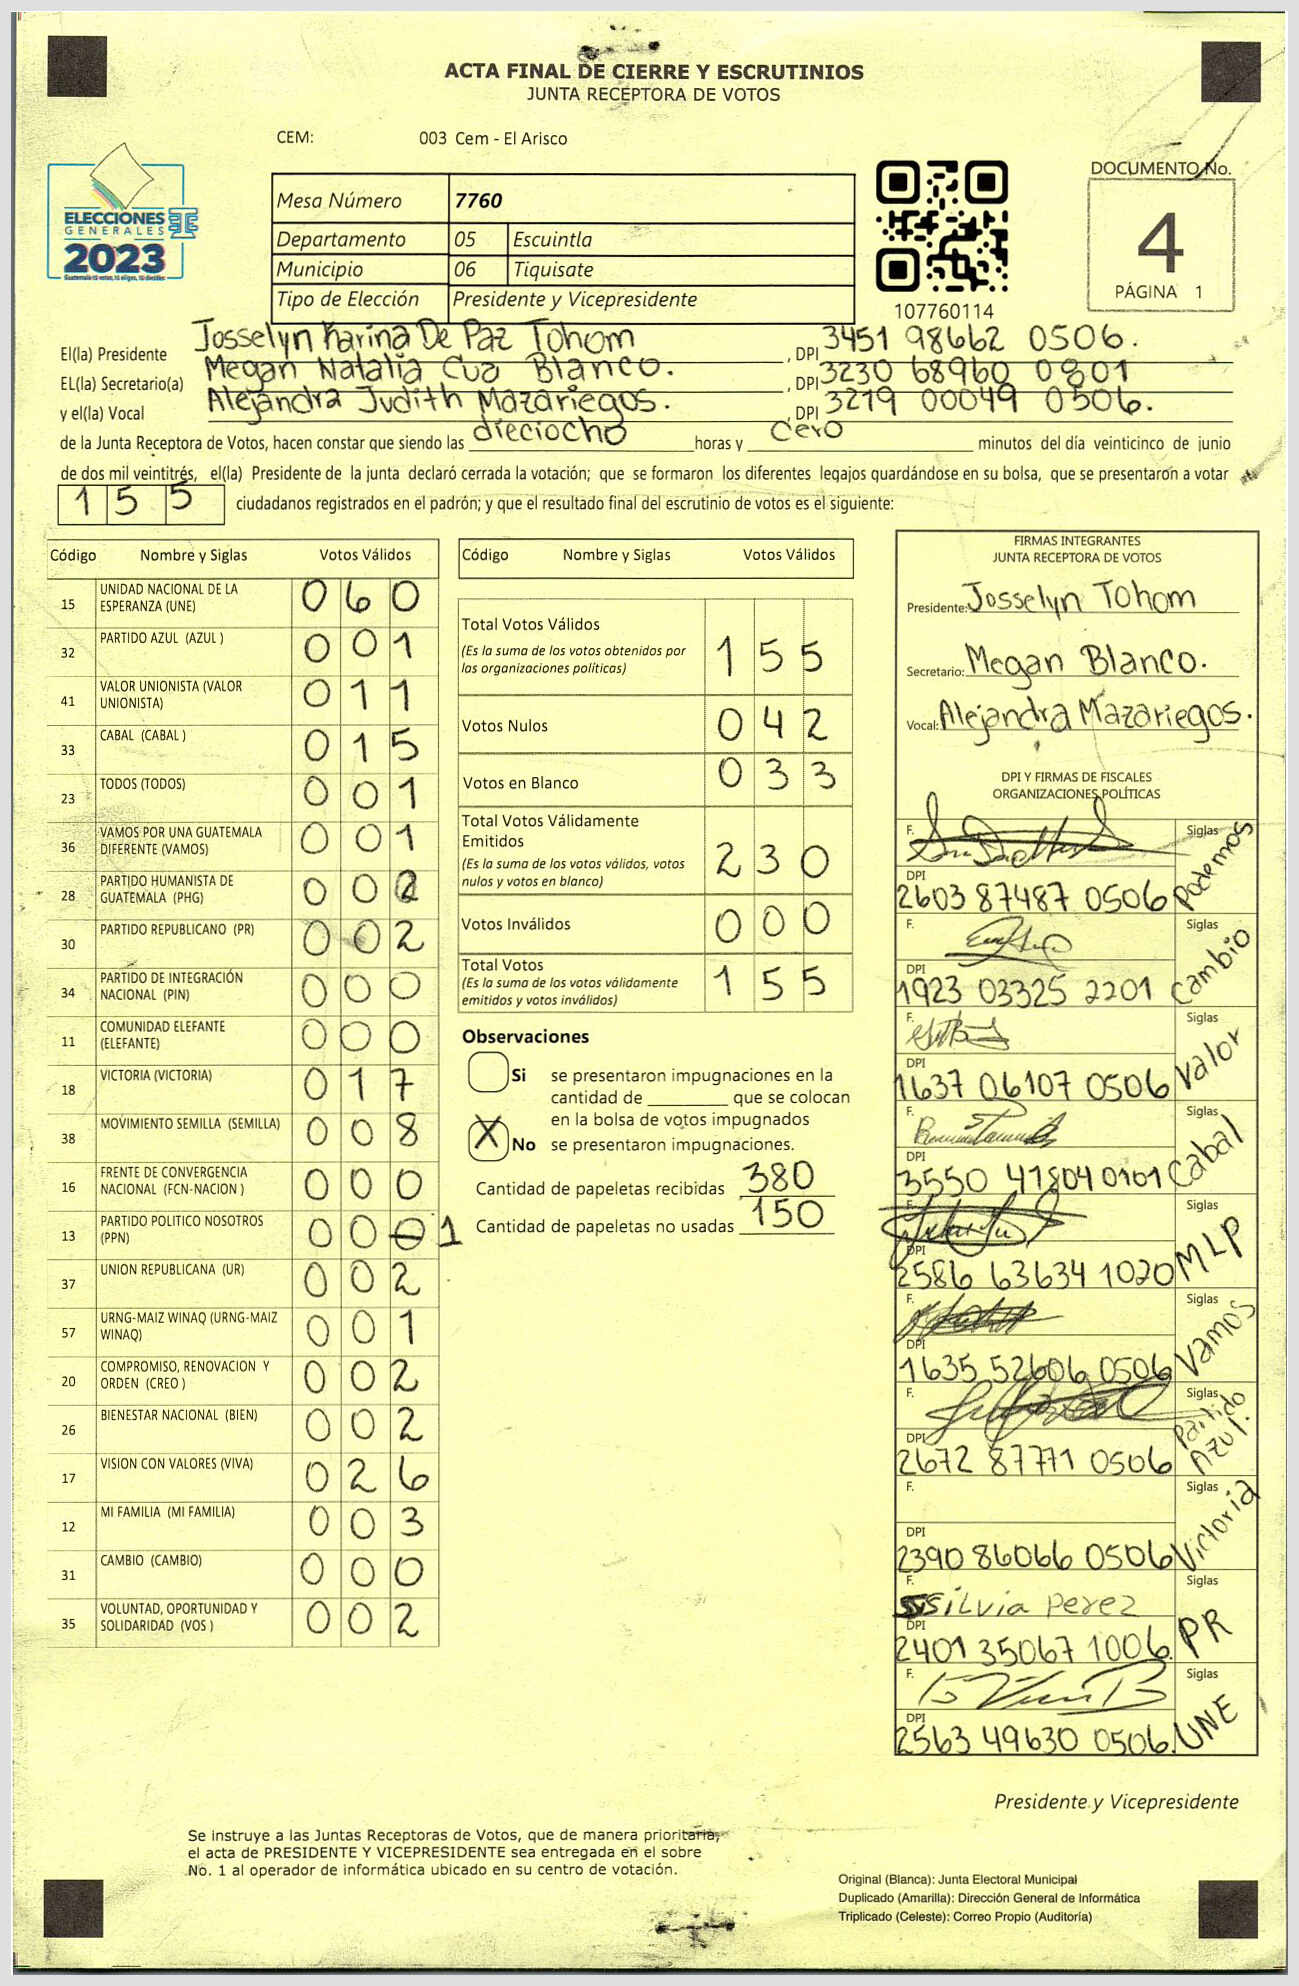 ACTA FINAL DE CIERRE Y ESCRUTINIOS
JUNTA RECEPTORA DE VOTOS
CEM: 003 Cem - El Arisco
ELECCIONES
GENERALES
2023
Mesa Número 7760
Departamento 05 Escuintla
Municipio 06 Tiquisate
Tipo de Elección Presidente y Vicepresidente
107760114
DOCUMENTO No.
4
PÁGINA 1
El(la) Presidente Josselyn Karina De Paz Tohom, DPI 3451 98662 0506.
EL(la) Secretario(a) Megan Natalia Cua Blanco., DPI 3230 68960 0801
y el(la) Vocal Alejandra Judith Mazariegos., DPI 3219 00049 0506.
de la Junta Receptora de Votos, hacen constar que siendo las dieciocho horas y cero minutos del día veinticinco de junio
de dos mil veintitrés, el(la) Presidente de la junta declaró cerrada la votación; que se formaron los diferentes legajos guardándose en su bolsa, que se presentaron a votar
155 ciudadanos registrados en el padrón; y que el resultado final del escrutinio de votos es el siguiente:
Código Nombre y Siglas Votos Válidos
15 UNIDAD NACIONAL DE LA ESPERANZA (UNE) 0 6 0
32 PARTIDO AZUL (AZUL ) 0 0 1
41 VALOR UNIONISTA (VALOR UNIONISTA) 0 1 1
33 CABAL (CABAL ) 0 1 5
23 TODOS (TODOS) 0 0 1
36 VAMOS POR UNA GUATEMALA DIFERENTE (VAMOS) 0 0 1
28 PARTIDO HUMANISTA DE GUATEMALA (PHG) 0 0 2
30 PARTIDO REPUBLICANO (PR) 0 0 2
34 PARTIDO DE INTEGRACIÓN NACIONAL (PIN) 0 0 0
11 COMUNIDAD ELEFANTE (ELEFANTE) 0 0 0
18 VICTORIA (VICTORIA) 0 1 7
38 MOVIMIENTO SEMILLA (SEMILLA) 0 0 8
16 FRENTE DE CONVERGENCIA NACIONAL (FCN-NACION ) 0 0 0
13 PARTIDO POLITICO NOSOTROS (PPN) 0 0 0 1
37 UNION REPUBLICANA (UR) 0 0 2
57 URNG-MAIZ WINAQ (URNG-MAIZ WINAQ) 0 0 1
20 COMPROMISO, RENOVACION Y ORDEN (CREO ) 0 0 2
26 BIENESTAR NACIONAL (BIEN) 0 0 2
17 VISION CON VALORES (VIVA) 0 2 6
12 MI FAMILIA (MI FAMILIA) 0 0 3
31 CAMBIO (CAMBIO) 0 0 0
35 VOLUNTAD, OPORTUNIDAD Y SOLIDARIDAD (VOS ) 0 0 2
Código Nombre y Siglas Votos Válidos
Total Votos Válidos 1 5 5
(Es la suma de los votos obtenidos por
las organizaciones políticas)
Votos Nulos 0 4 2
Votos en Blanco 0 3 3
Total Votos Válidamente
Emitidos 2 3 0
(Es la suma de los votos válidos, votos
nulos y votos en blanco)
Votos Inválidos 0 0 0
Total Votos 1 5 5
(Es la suma de los votos válidamente
emitidos y votos inválidos)
Observaciones
Si se presentaron impugnaciones en la
cantidad de ________ que se colocan
en la bolsa de votos impugnados
X No se presentaron impugnaciones.
Cantidad de papeletas recibidas 380
Cantidad de papeletas no usadas 150
FIRMAS INTEGRANTES
JUNTA RECEPTORA DE VOTOS
Presidente: Josselyn Tohom
Secretario: Megan Blanco.
Vocal: Alejandra Mazariegos.
DPI Y FIRMAS DE FISCALES
ORGANIZACIONES POLÍTICAS
F. Siglas Podemos
DPI 2603 87487 0506
F. Siglas Cambio
DPI 1923 03325 2201
F. Siglas Valor
DPI 1637 06107 0506
F. Siglas Cabal
DPI 3550 41804 0101
F. Siglas MLP
DPI 2586 63634 1020
F. Siglas Vamos
DPI 1635 52606 0506
F. Siglas Partido Azul.
DPI 2672 87771 0506
F. Siglas Victoria
DPI 2390 86066 0506
F. Silvia Perez Siglas PR
DPI 2401 35067 1006.
F. Siglas UNE
DPI 2563 49630 0506.
Presidente y Vicepresidente
Se instruye a las Juntas Receptoras de Votos, que de manera prioritaria,
el acta de PRESIDENTE Y VICEPRESIDENTE sea entregada en el sobre
No. 1 al operador de informática ubicado en su centro de votación.
Original (Blanca): Junta Electoral Municipal
Duplicado (Amarilla): Dirección General de Informática
Triplicado (Celeste): Correo Propio (Auditoría)